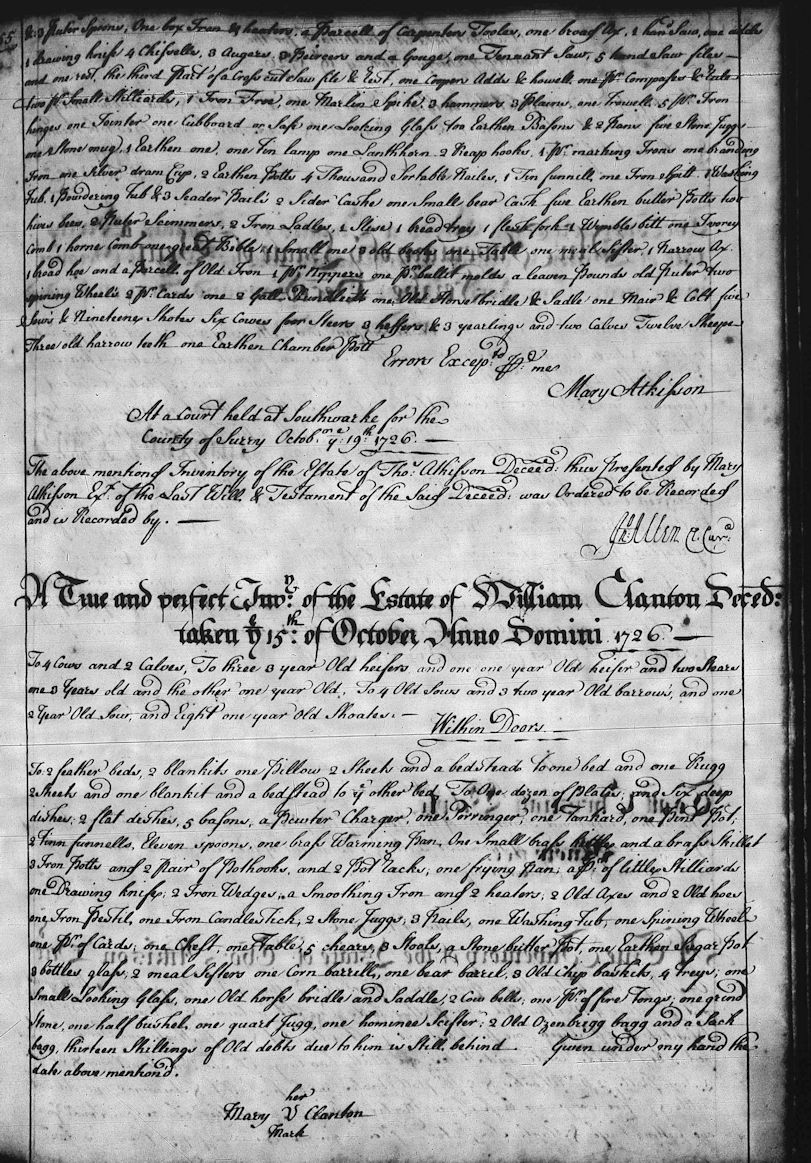 55
& 3 Puter Spoons, One box Iron & heaters, a Parcell of Carpenters Tooles, one broad Ax, 1 hand Saw, one adds
1 Drawing knife 4 Chissells, 3 Augers 3 Peircers and a Gouge, one Tennant Saw, 5 hand Saw files
and one rest, the third Part of a Cross cut Saw file & rest, one Coopers Adds & howell, one pr. Compases &
two pr. Small Stilliards, 1 Iron Froe, one Marlin Spike, 3 hammers 3 Plains, one Trowell 5 pr. Iron
hinges one Jointer one Cubboard or Safe one Looking Glass too Earthen Basons & 2 Pans five Stone Juggs
one Stone mug, 1 Earthen one, one Tin lamp one Lanthhorn 2 Reap hooks, 1 pr. marking Irons one branding
Iron one Silver dram Cup, 2 Earthen Potts 4 Thousand Sortable Nailes, 1 Tin funnill, one Iron Spitt 1 Washing
Tub, 1 Powdering Tub & 3 Pails 2 Sider Casks one Small bear Cask five Earthen butter Potts two
hives bees, 2 Puter Scimmers, 2 Iron Ladles, 1 1 bread tray 1 flesh fork 1 Wimble bitt one Ivorey
Comb 1 horne Comb one great Bible, 1 Small one 3 old books one Table one meal Sifter, 1 Narrow Ax.
1 broad hoe and a Parcell of Old Iron 1 pr. Nippers one pr. bullet molds a leaven Pounds old Puter two
Spining Wheels 2 pr. Cards one 2 Gall. Rundlett one Old Horse bridle & Sadle one Mair & Colt five
Sows & Nineteene Shotes Six Cowes four Steers 3 heffers, & 3 yearlings and two Calves Twelve Sheepe
Three old harrow teeth one Earthen Chamber Pott
Errors Excepted Pr. me
Mary Atkisson
At a Court held at Southwarke for the
County of Surry Octobr. ye. 19th. 1726.
The above mentioned Inventory of the Estate of Thos. Atkisson Deceed: thus Presented by Mary
Atkisson Ext. of the Last Will & Testament of the Said Deceed: was Ordered to be Recorded
and is Recorded by.
Jno. Allen Cl Curd.
A True and perfect Invy. of the Estate of William Clanton Deced:
taken ye 15th. of October Anno Domini 1726.
To 4 Cows and 2 Calves, To three 3 year Old heifers and one one year Old heifer and two Stears
one 3 Years old and the other one year Old, To 4 Old Sows and 3 two year Old barrows, and one
2 Year Old Sow, and Eight one year Old Shoates.
Within Doors.
To 2 feather beds, 2 blankits one Pillow 2 Sheets and a bedstead to one bed and one Rugg
2 Sheets and one blankit and a bedstead to ye other bed, To One dozen of Plates, and Six deep
dishes, 2 flat deshes, 5 basons, a Pewter Charger, one Porringer, one Tankard, one Pint Pot,
2 Tinn funnells, Eleven spoons, one brass Warming Pan. One Small brass kettle and a brass Skillet
3 Iron Potts and 2 Pair of Pothooks, and 2 Pot racks, one frying Pan, a Pr. of little Stilliards
one Drawing knife, 2 Iron Wedges, a Smoothing Iron and 2 heaters, 2 Old Axes and 2 Old hoes
one Iron Pestil, one Iron Candlestick, 2 Stone Juggs, 3 Pails, one Washing Tub, one Spining Wheel
one Pr. of Cards, one Chest, one Table, 5 chears, 3 Stools, a Stone butter Pot, one Earthen Sugar Pot
3 bottles glass, 2 meal Sifters one Corn barrill, one bear barrel, 3 Old Chip baskits, 4 treys, one
Small Looking Glass, one Old horse bridle and Saddle, 2 Cow bells, one Pr. of fire Tongs, one grind
Stone, one half bushel, one quart Jugg, one hominee Scifter, 2 Old Ozenbrigg bagg and a Sack
bagg, thirteen Shillings of Old debts due to him is Still behind Given under my hand the
date above mention'd.
her
Mary V Clanton
Mark